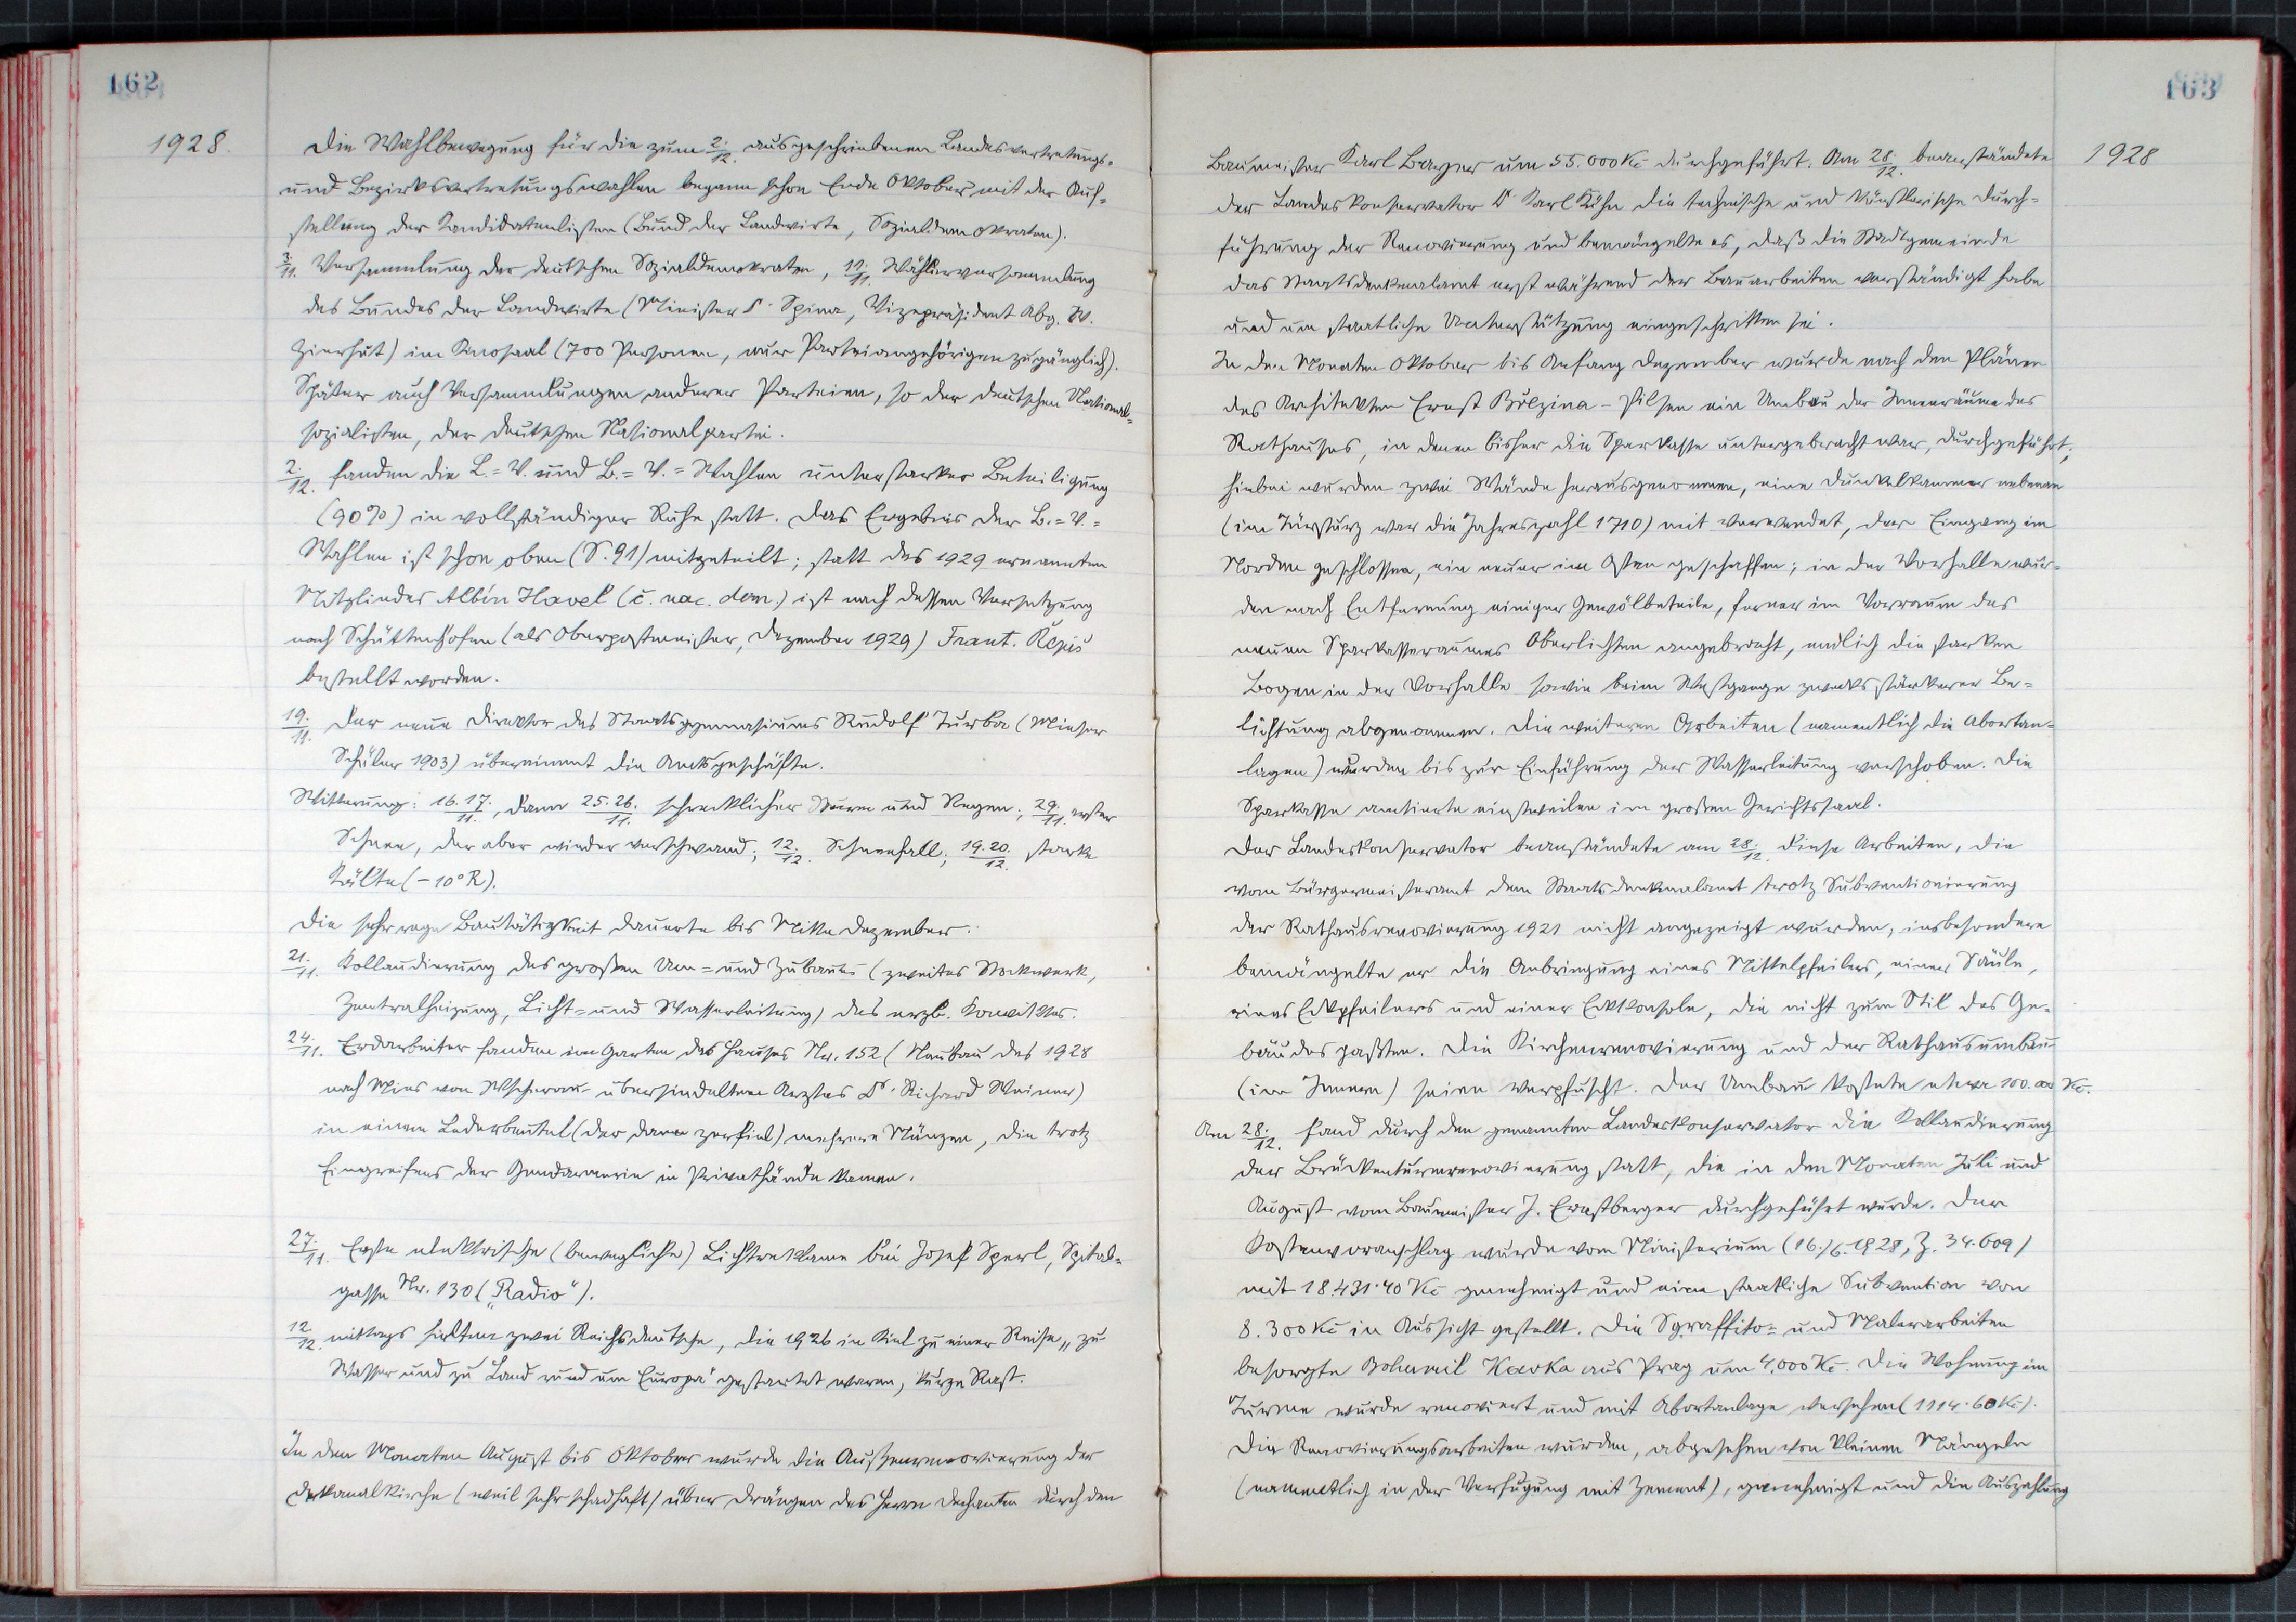 162
1928.
Die Wahlbewegung für die zum 2./12. ausgeschriebenen Landesvertretungs-
und Bezirksvertretungswahlen begann schon Ende Oktober mit der Auf-
stellung der Kandidatenlisten (Bund der Landwirte, Sozialdemokraten).
3./11. Versammlung der deutschen Sozialdemokraten, 11./11. Wählerversammlung
des Bundes der Landwirte (Minister Dr. Spina, Vizepräsident Abg. W.
Zierhut) im Kinosaal (700 Personen, nur Parteiangehörigen zugänglich).
Später auch Versammlungen anderer Parteien, so der deutschen National-
sozialisten, der deutschen Nationalpartei.
2./12. fanden die L.=V. und B.=V.=Wahlen unter starker Beteiligung
(90%) in vollständiger Ruhe statt. Das Ergebnis der B.=V.=
Wahlen ist schon oben (S. 91) mitgeteilt; statt des 1929 ernannten
Mitgliedes Albín Havel (č. nac. dem.) ist nach dessen Versetzung
nach Schüttenhofen (als Oberpostmeister, Dezember 1929) Frant. Řepis
bestellt worden.
19./11. Der neue Direktor des Staatsgymnasiums Rudolf Turba (Mieser
Schüler 1903) übernimmt die Amtsgeschäfte.
Witterung: 16. 17./11., dann 25. 26./11. schrecklicher Sturm und Regen; 29./11. erster
Schnee, der aber wieder verschwand; 12./12. Schneefall; 19. 20./12. starke
Kälte (-10° R).
Die sehr rege Bautätigkeit dauerte bis Mitte Dezember.
21./11. Kollaudierung des großen Um- und Zubaues (zweites Stockwerk,
Zentralheizung, Licht- und Wasserleitung) des erzb. Konviktes.
24./11. Erdarbeiter fanden im Garten des Hauses Nr. 152 (Neubau des 1928
nach Mies von übersiedelten Arztes Dr. Richard Weiner)
in einem Lederbeutel (der dann zerfiel) mehrere Münzen, die trotz
Eingreifens der Gendarmerie in Privathände kamen.
27./11. Erste elektrische (bewegliche) Lichtreklame bei Josef Sperl, Spital-
gasse Nr. 130 („Radio“).
12/12. mittags hielten zwei Reichsdeutsche, die 1926 in Kiel zu einer Reise „zu
Wasser und zu Land rund um Europa“ gestartet waren, kurze Rast.
In den Monaten August bis Oktober wurde die Außenrenovierung der
Dekanalkirche (weil sehr schadhaft) über Drängen des Herrn Dechanten durch den
163
1928
Baumeister Karl um 55.000 Kč durchgeführt. Am 28./12. beanständete
der Landeskonservator Dr. Karl Kühn die technische und künstlerische Durch-
führung der Renovierung und bemängelte es, daß die Stadtgemeinde
das Staatsdenkmalamt erst während der Bauarbeiten verständigt habe
und um staatliche Unterstützung eingeschritten sei.
In den Monaten Oktober bis Anfang Dezember wurde nach den Plänen
des Architekten Ernst Březina - Pilsen ein Umbau der Innenräume des
Rathauses, in denen bisher die Sparkasse untergebracht war, durchgeführt;
hiebei wurden zwei Wände herausgenommen, eine Dunkelkammer nebenan
(im Türsturz war die Jahreszahl 1710) mit verwendet, der Eingang im
Norden geschlossen, ein neuer im Osten geschaffen; in der Vorhalle wur-
den nach Entfernung einiger Gewölbeteile, ferner im Vorraum des
neuen Sparkasseraumes Oberlichten angebracht, endlich die starken
Bogen in der Vorhalle sowie beim Westgange zwecks stärkerer Be-
lichtung abgenommen. Die weiteren Arbeiten (namentlich die Abortan-
lagen) wurden bis zur Einführung der Wasserleitung verschoben. Die
Sparkasse amtierte einstweilen im großen Gerichtssaal.
Der Landeskonservator beanständete am 28./12. diese Arbeiten, die
vom Bürgermeisteramt dem Staatsdenkmalamt trotz Subventionierung
der Rathausrenovierung 1921 nicht angezeigt wurden, insbesondere
bemängelte er die Anbringung eines Mittelpfeilers, einer Säule,
eines Eckpfeilers und einer Eckkonsole, die nicht zum Stil des Ge-
bäudes paßten. Die Kirchenrenovierung und der Rathausumbau
(im Innern) seien verpfuscht. Der Umbau kostete etwa 100.000 Kč.
Am 28./12. fand durch den genannten Landeskonservator die Kollaudierung
der Brückenturmrenovierung statt, die in den Monaten Juli und
August vom Baumeister J. Ernstberger durchgeführt wurde. Der
Kostenvoranschlag wurde vom Ministerium (16./6. 1928, Z. 34.609)
mit 18.431·40 Kč genehmigt und eine staatliche Subvention von
8.300 Kč in Aussicht gestellt. Die Sgraffito- und Malerarbeiten
besorgte Bohumil Kavka aus Prag um 4.000 Kč. Die Wohnung im
Turme wurde renoviert und mit Abortanlage versehen (1114·60 Kč).
Die Renovierungsarbeiten wurden, abgesehen von kleinen Mängeln
(namentlich in der Verfugung mit Zement), genehmigt und die Auszahlung